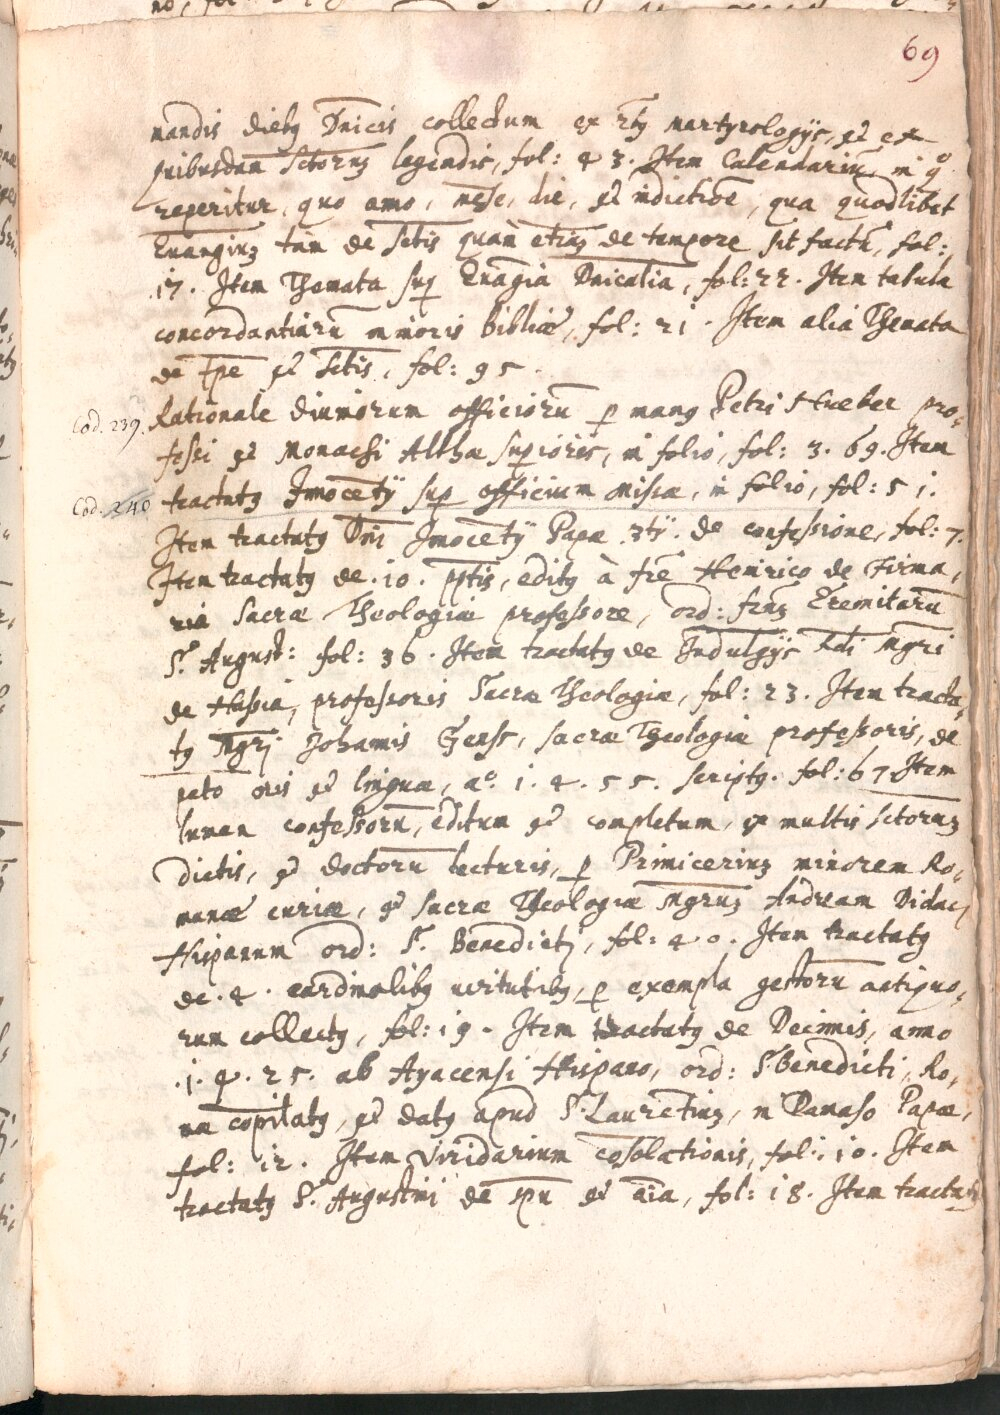 69
nandis dieb9 Dnicis collectum ex rby martyrologijs, et ex
quibusdam sctorum legendis, fol: 43. Item Calendariũ, in qo
reperitur, quo anno, mẽse, die, et indictiõe, qua quodlibet
Euangium tàm de sctis quàm etiam de tempore sit factũ, fol:
17. Item Themata sup Euãgia Dnicalia, fol: 22. Item tabula
concordantiarũ minoris bibliæ, fol: 21. Item alia Themata
de tpe et sctis, fol: 95.
Cod. 239. Rationale diuinorum officiorũ p man9 Petri Hueber pro,
fessi et Monachi Althæ supioris, in folio, fol: 3.69. Item
Cod. 240 tractat9 Innocẽtij sup officium missæ, in folio, fol: 51.
Item tractat9 Dni Innocẽtij Papæ 3tij. de confessione, fol: 7.
Item tractat9 de .10. pptis, edit9 à frẽ Henrico de Firma,
ria Sacræ Theologiæ professore, ord: frum Eremitarũ
S. August: fol: 36. Item tractat9 de Indulgijs Mgri
de Hassia, professoris Sacræ Theologiæ, fol: 23. Item tracta,
t9 Mgri Johannis Gens, sacræ Theologiæ professoris, de
pctõ oris et linguæ, ao. 1.4.55. script9. fol: 67 Item
lumen confessorũ, editum et completum, ex multis sctorum
dictis, et doctorũ lecturis, p Primicerium minorem Ro,
manæ curiæ, et sacræ Theologiæ Mgrum Andream Didaci
Hispanum ord: S. Benedicti, fol: 40. Item tractat9
de .4. cardinalib9 uirtutib9, p exempla gestorũ antiquo,
rum collect9, fol: 19. Item tractat9 de Decimis, anno
.1.4.25. ab Ayacensi Hispano, ord: S. Benedicti, Ro,
mæ copilat9, et dat9 apud S. Laurẽtium, in Damaso Papæ,
fol: 12. Item Viridarium cõsolationis, fol: 10. Item
tractat9 S. Augustini de spũ et aĩa, fol: 18. Item tractat9